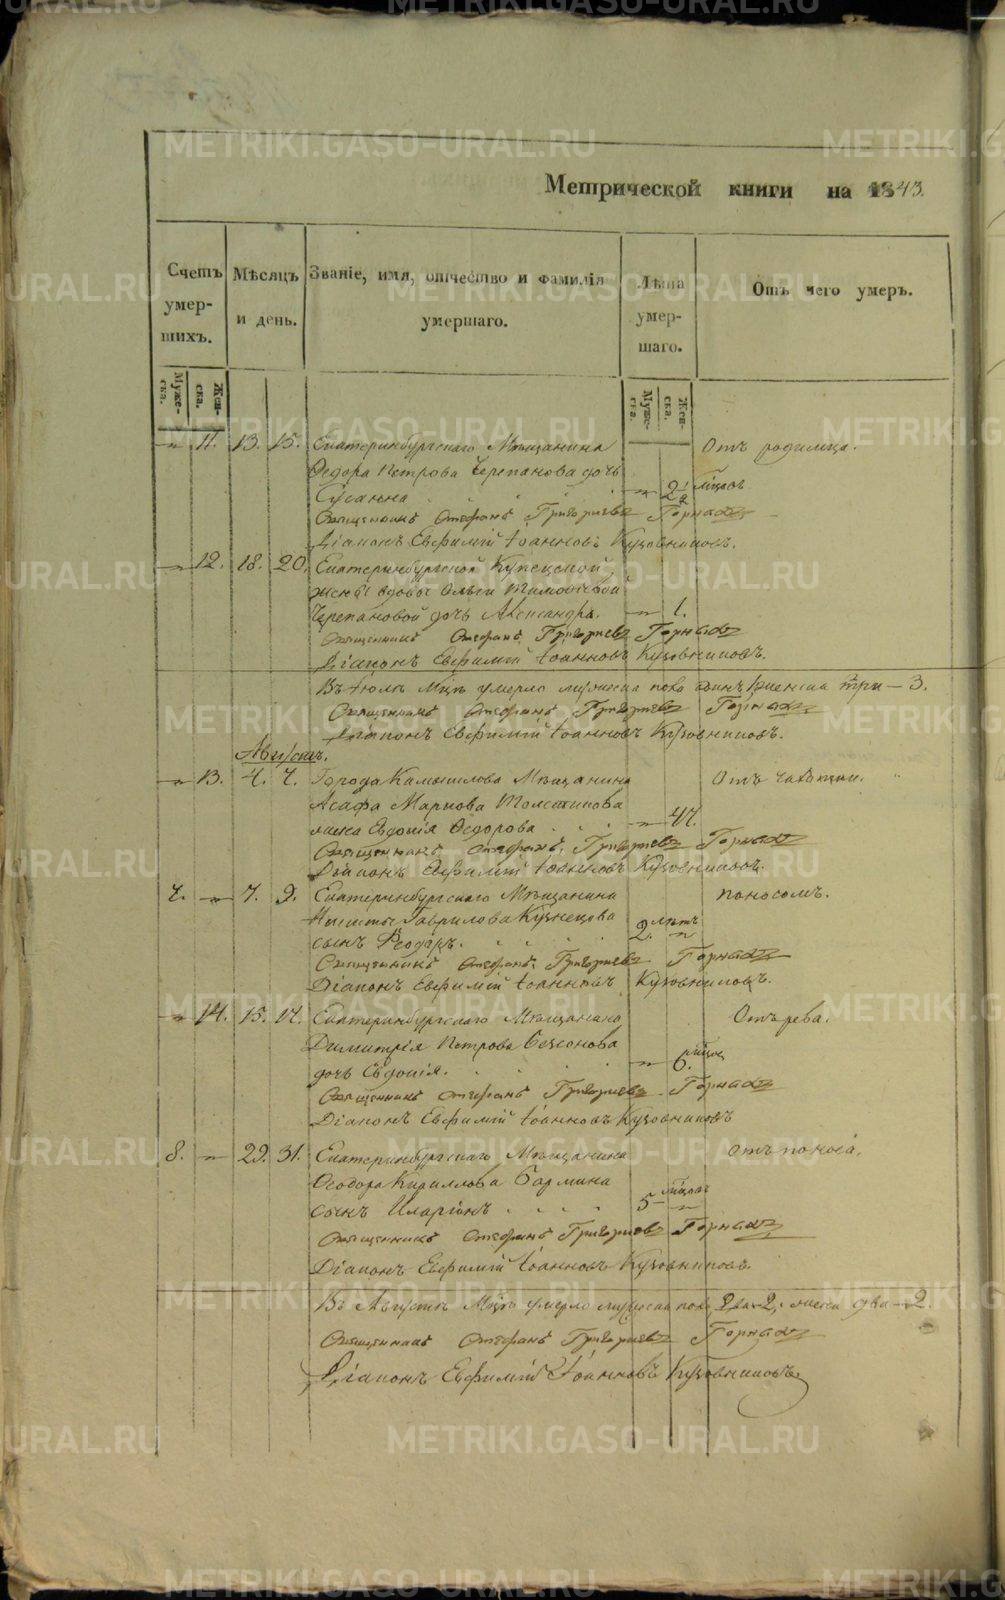 Метрической книги на 1843.
Счетъ умер-шихъ.
Мѣсяцъ и день.
Званіе, имя, отчество и фамилія умершаго.
Лѣта умер-шаго.
Отъ чего умеръ.
Муже-ска.
Жен-ска.
Муже-ска.
Жен-ска.
" 11. 13. 15. Екатеринбургскаго Мѣщанина Отъ родимца.
Ѳедора Петрова Черепанова дочь
Сусанна " 2 1/2 мѣсяц.
Священникъ Стефанъ Григорьевъ
Діаконъ Евфимій Іоанновъ Кузовниковъ.
" 12. 18. 20. Екатеринбургской Купецкой
жены вдовы Ольги Тимофѣевой
Черепановой дочь Александра. " 1.
Священникъ Стефанъ Григорьевъ
Діаконъ Евфимій Іоанновъ Кузовниковъ.
Въ Іюлѣ Мцѣ умерло мужеска пола одинъ женска три – 3.
Священникъ Стефанъ Григорьевъ
Діаконъ Евфимій Іоанновъ Кузовниковъ.
Августъ.
" 13. 4. 7. Города Камышлова Мѣщанина Отъ чахотки.
Асафа Маркова Толстикова
жена Евдокія Ѳедорова " 47.
Священникъ Стефанъ Григорьевъ
Діаконъ Евфимій Іоанновъ Кузовниковъ.
7. " 7. 9. Екатеринбургскаго Мѣщанина поносомъ.
Никиты Гаврилова Кузнецова
сынъ Ѳеодоръ. 2. лѣтъ "
Священникъ Стефанъ Григорьевъ
Діаконъ Евфимій Іоанновъ Кузовниковъ.
" 14. 15. 17. Екатеринбургскаго Мѣщанина Отъ рева.
Димитрія Петрова
дочь Евдокія. " 6. мѣсяц
Священникъ Стефанъ Григорьевъ
Діаконъ Евфимій Іоанновъ Кузовниковъ
8. " 29. 31. Екатеринбургскаго Мѣщанина Отъ поноса.
Ѳеодора Кириллова Бармина
сынъ Иларіонъ 5 мѣсяц "
Священникъ Стефанъ Григорьевъ
Діаконъ Евфимій Іоанновъ Кузовниковъ.
Въ Августѣ Мцѣ умерло мужеска пола два – 2, женска два – 2.
Священникъ Стефанъ Григорьевъ
Діаконъ Евфимій Іоанновъ Кузовниковъ.
METRIKI.GASO-URAL.RU